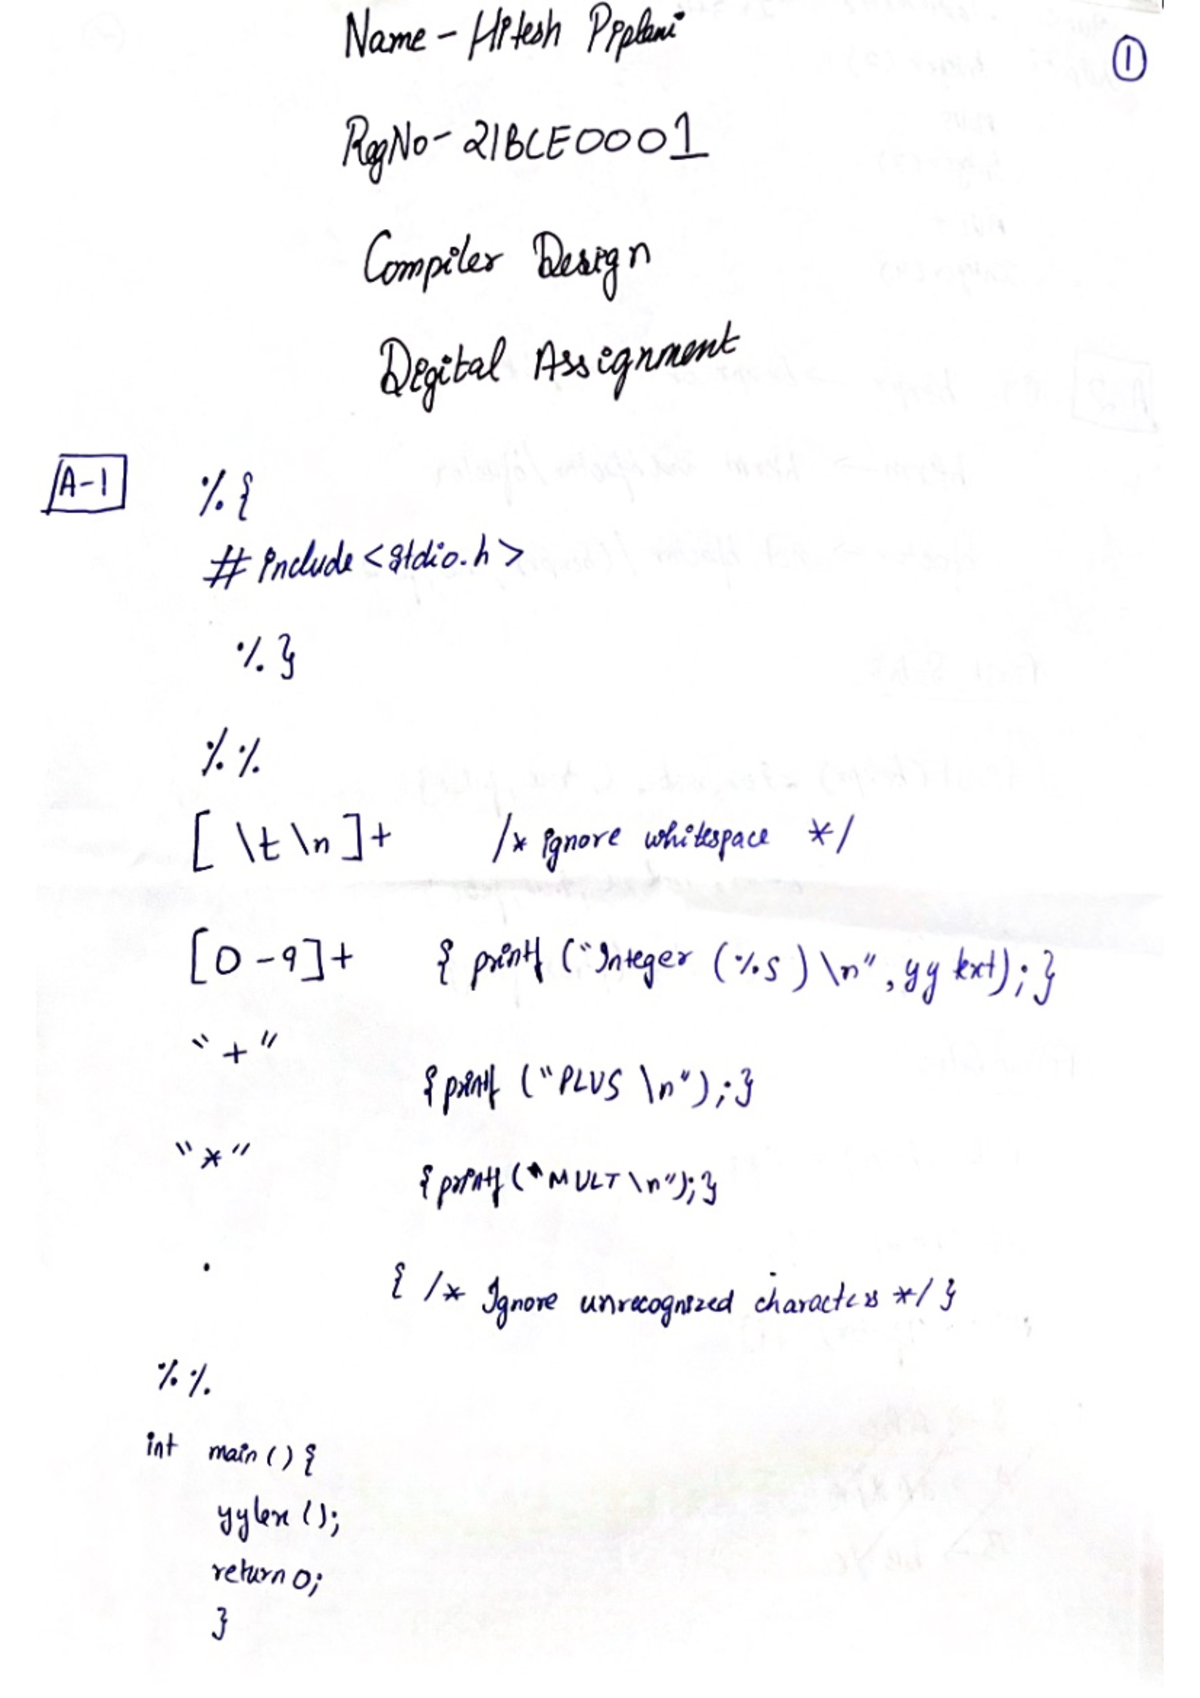 Name - Hitesh Piplani
1
RegNo - 21BCE0001
Compiler Design
Digital Assignment
A-1
%{
#include <stdio.h>
%}
%%
[ \t \n ]+ /* ignore whitespace */
[0-9]+ { printf ("Integer (%s) \n", yytext); }
"+"
{ printf ("PLUS \n"); }
"*"
{ printf ("MULT \n"); }
. { /* Ignore unrecognized characters */ }
%%
int main () {
yylex ();
return 0;
}